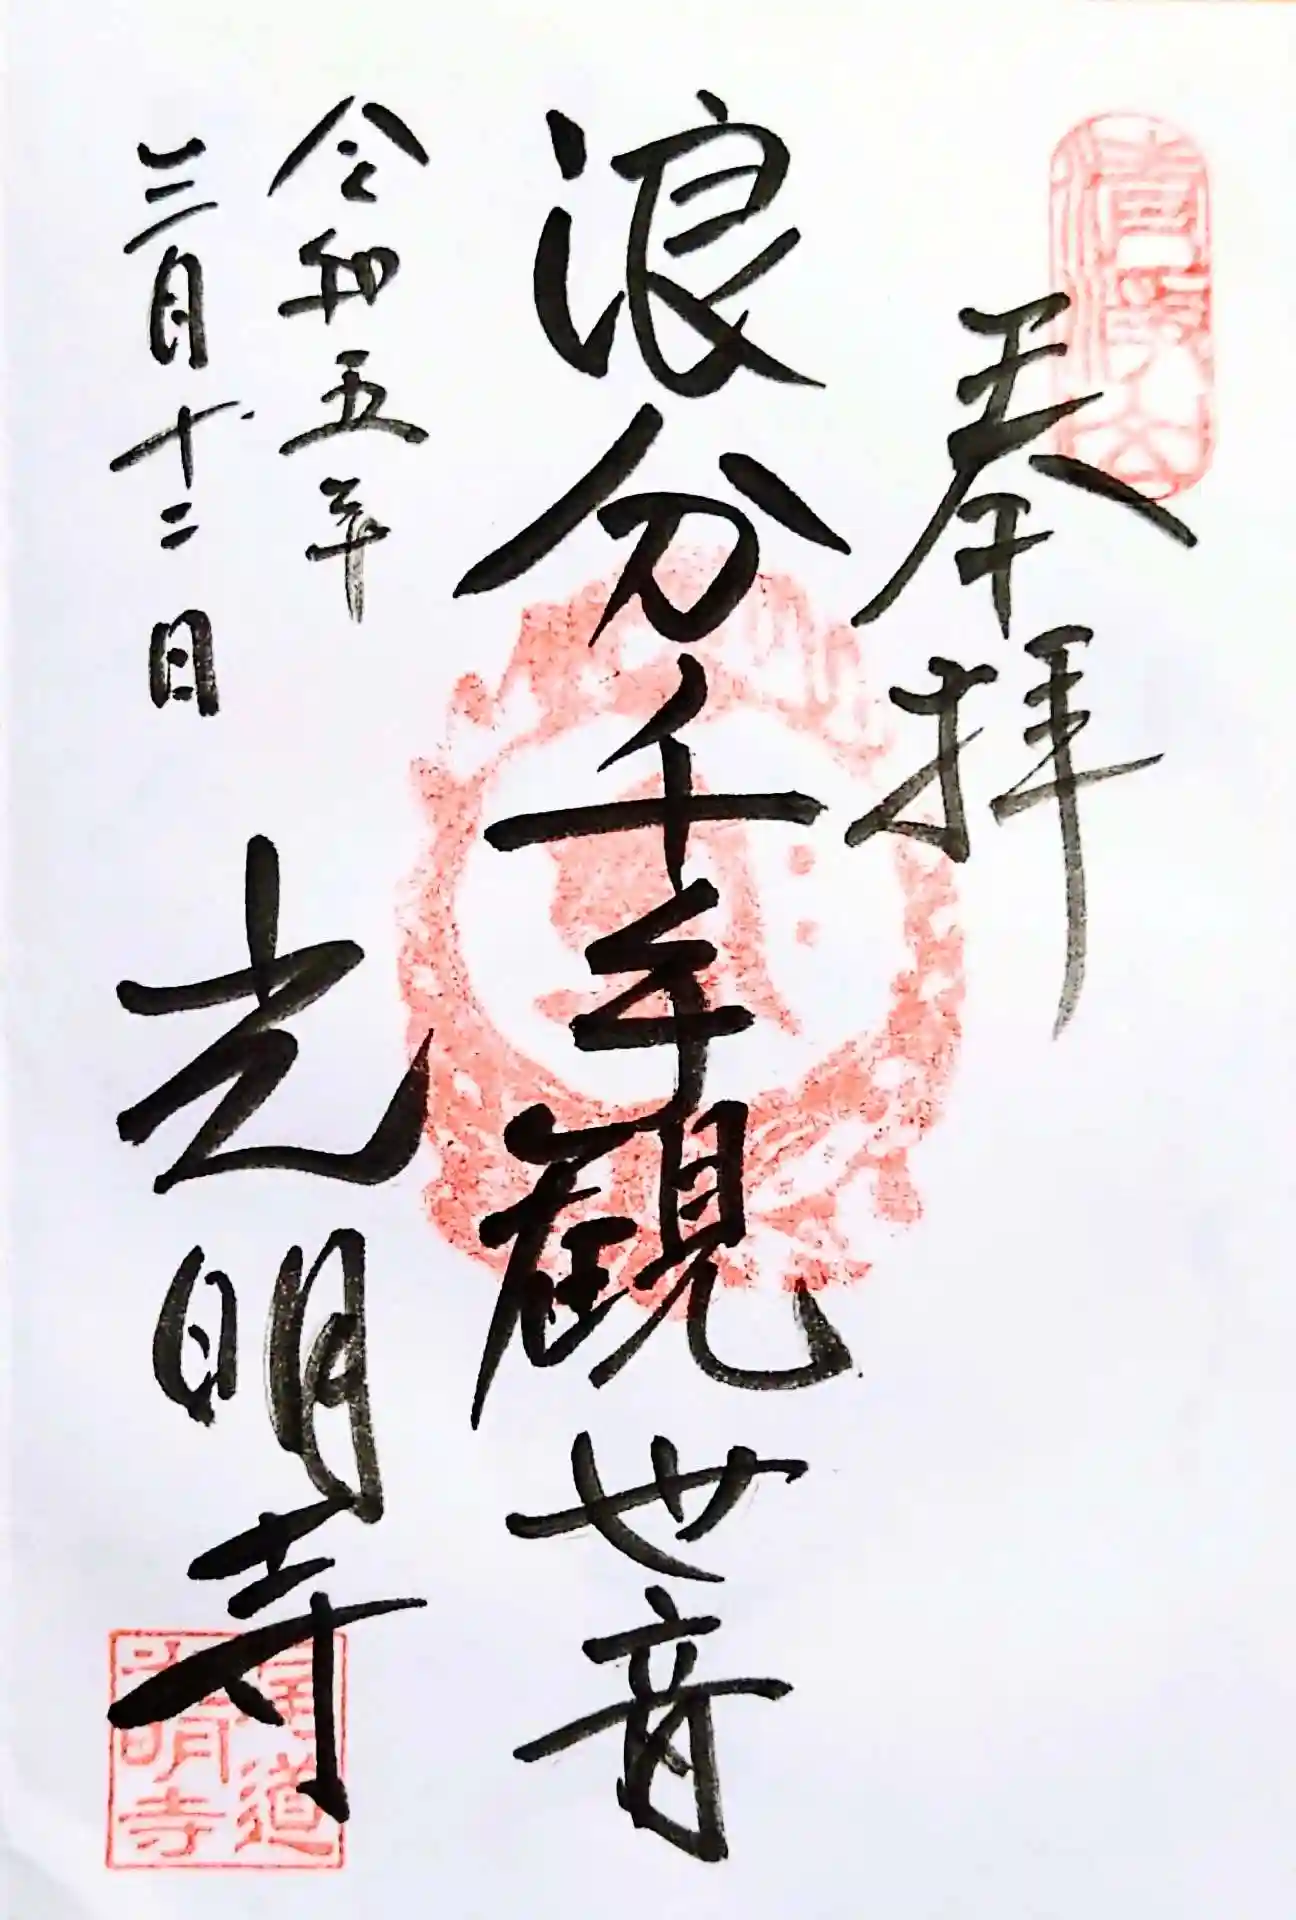 奉拝
浪分千手観世音
令和五年
三月十二日
光明寺
尾道
光明寺